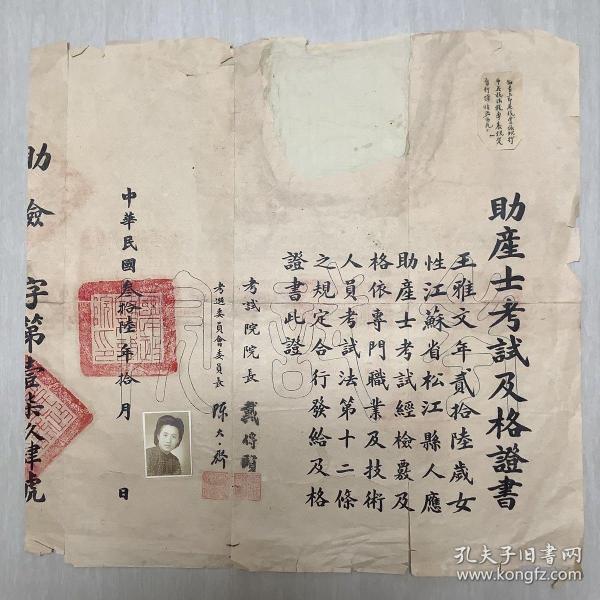 助産士考試及格證書
王雅文年貳拾陸歲女
性江蘇省松江縣人應
助産士考試經檢覈及
格依專門職業及技術
人員考試法第十二條
之規定合行發給及格
證書此證
考試院院長
考選委員會委員長 陳大齊
中華民國叁拾陸年拾月 日
助檢字第壹柒久肆號
孔夫子旧书网
www.kongfz.com